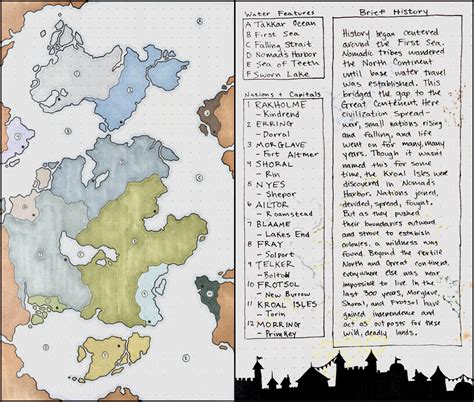 Water Features
A Takkar Ocean
B First Sea
C Falling Strait
D Nomads Harbor
E Sea of Teeth
F Sworn Lake
Nations + Capitals
1 Rakholme
- Kindrend
2 Erring
- Dorral
3 Morglave
- Fort Altmer
4 Shoral
- Rin
5 Nyes
- Shepor
6 Ailtor
- Roamstead
7 Blaame
- Lakes End
8 Fray
- Solport
9 Telker
- Boltoff
10 Frotsol
- New Burrow
11 Kroal Isles
- Torin
12 Morring
- Primkey
Brief History
History began centered
around the First Sea.
Nomadic tribes wandered
the North Continent
until base water travel
was established. This
bridged the gap to the
Great Continent. Here
civilization spread-
war, small nations rising
and falling, and life
went on for many, many
years. Though it wasn't
named this for some
time, the Kroal Isles were
discovered in Nomads
Harbor. Nations joined,
divided, spread, fought.
But as they pushed
their boundaries outward
and strove to establish
colonies, a wildness was
found. Beyond the fertile
North and Great continent,
everywhere else was near
impossible to live. In the
last 300 years, Morglave,
Shoral, and Frotsol have
gained independence and
act as outposts for these
wild, deadly lands.